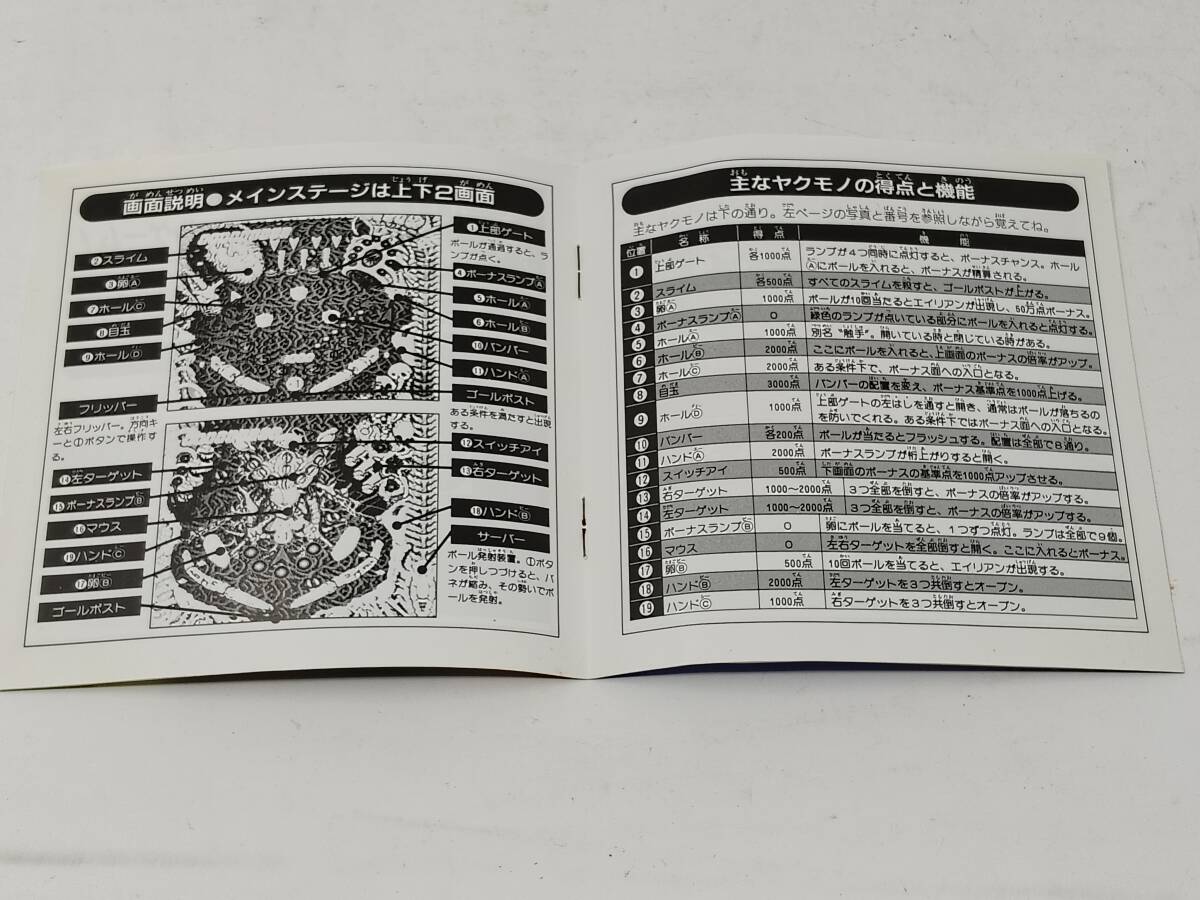 画面説明●メインステージは上下2画面
がめんせつめい じょうげ がめん
①上部ゲート
ボールが通過すると、ラ
ンプが点く。
②スライム
③卵Ⓐ
④ボーナスランプⒶ
⑦ホールⒸ
⑤ホールⒶ
⑧目玉
⑥ホールⒷ
⑨ホールⒹ
⑩バンパー
⑪ハンドⒶ
フリッパー
左右フリッパー。方向キ
ーと①ボタンで操作す
る。
ゴールポスト
ある条件を満たすと出現
する。
⑫スイッチアイ
⑭左ターゲット
⑬右ターゲット
⑮ボーナスランプⒷ
⑯マウス
⑱ハンドⒷ
⑲ハンドⒸ
サーバー
ボール発射装置。①ボタ
ンを押しつづけると、バ
ネが縮み、その勢いでボ
ールを発射。
⑰卵Ⓑ
ゴールポスト
主なヤクモノの得点と機能
おも とくてん きのう
主なヤクモノは下の通り。左ページの写真と番号を参照しながら覚えてね。
位置 名称 得点 機能
① 上部ゲート 各1000点 ランプが4つ同時に点灯すると、ボーナスチャンス。ホール
Ⓐにボールを入れると、ボーナスが精算される。
② スライム 各500点 すべてのスライムを殺すと、ゴールポストが上がる。
③ 卵Ⓐ 1000点 ボールが10回当たるとエイリアンが出現し、50万点ボーナス。
④ ボーナスランプⒶ 0 緑色のランプが点いている部分にボールを入れると点灯する。
⑤ ホールⒶ 1000点 別名“触手”。開いている時と閉じている時がある。
⑥ ホールⒷ 2000点 ここにボールを入れると、上画面のボーナスの倍率がアップ。
⑦ ホールⒸ 2000点 ある条件下で、ボーナス面への入口となる。
⑧ 目玉 3000点 バンパーの配置を変え、ボーナス基準点を1000点上げる。
⑨ ホールⒹ 1000点 上部ゲートの左はしを通すと開き、通常はボールが落ちるの
を防いでくれる。ある条件下ではボーナス面への入口となる。
⑩ バンパー 各200点 ボールが当たるとフラッシュする。配置は全部で8通り。
⑪ ハンドⒶ 2000点 ボーナスランプが桁上がりすると開く。
⑫ スイッチアイ 500点 下画面のボーナスの基準点を1000点アップさせる。
⑬ 右ターゲット 1000〜2000点 3つ全部を倒すと、ボーナスの倍率がアップする。
⑭ 左ターゲット 1000〜2000点 3つ全部を倒すと、ボーナスの倍率がアップする。
⑮ ボーナスランプⒷ 0 卵にボールを当てると、1つずつ点灯。ランプは全部で9個。
⑯ マウス 0 左右ターゲットを全部倒すと開く。ここに入れるとボーナス。
⑰ 卵Ⓑ 500点 10回ボールを当てると、エイリアンが出現する。
⑱ ハンドⒷ 2000点 左ターゲットを3つ共倒すとオープン。
⑲ ハンドⒸ 1000点 右ターゲットを3つ共倒すとオープン。